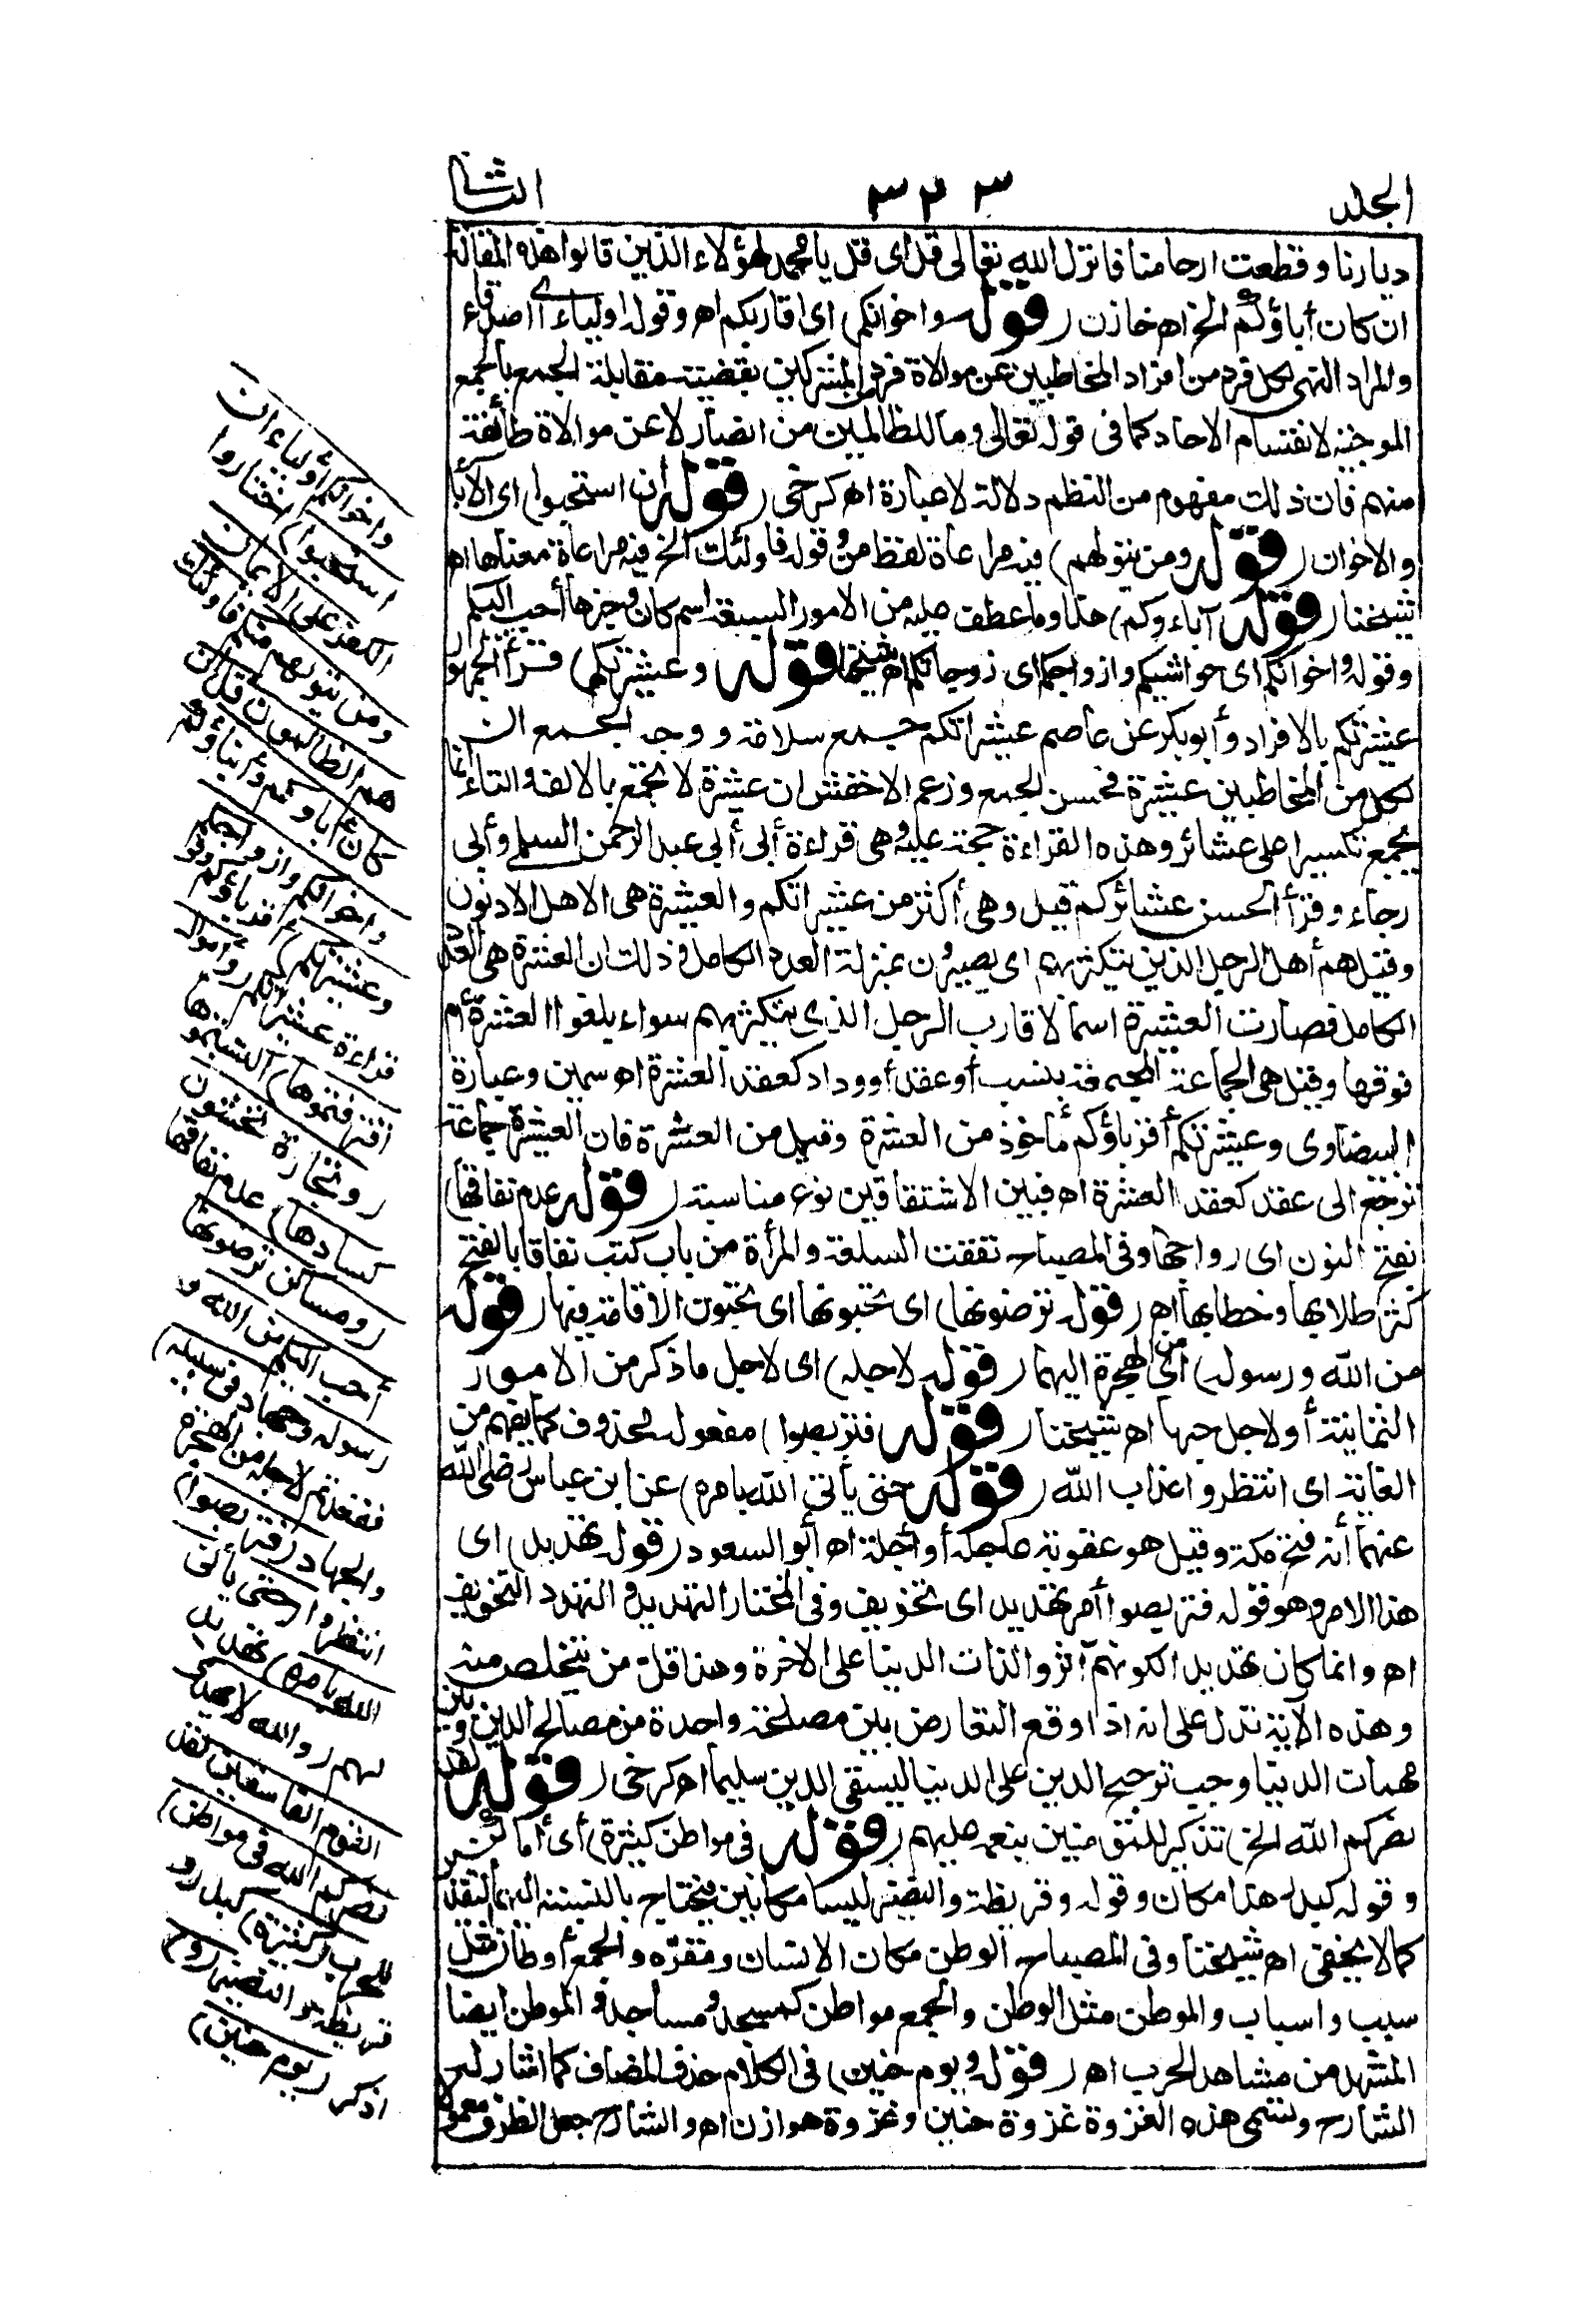 الجلد ٣٢٣ الثا
ديارنا وقطعت ارحامنا فانزل الله تعالى قل اى قل يا محمد لهؤلاء الذين قالوا هذه المقالة
ان كان أباؤكم الخ اه خازن (قوله واخوانكم) اى اقاربكم اه وقوله اولياء اى اصدقاء
والمراد النهى لكل فرد من افراد المخاطبين عن موالاة فرد من المشركين بقضية مقابلة الجمع بالجمع
الموجبة لانقسام الاحاد كما فى قوله تعالى وما للظالمين من انصار لا عن موالاة طائفة
منهم فان ذلك مفهوم من النظم دلالة لا عبارة اه كرخى (قوله ان استحبوا) اى الآباء
والاخوان (قوله ومن يتولهم) فيه مراعاة لفظ من وقوله فاولئك الخ فيه مراعاة معناها اه
شيخنا (قوله آباءوكم) هذا وما عطف عليه من الامور السبعة اسم كان وخبرها أحب اليكم
وقوله واخوانكم اى حواشيكم وازواجكم اى زوجاتكم اه شيخنا (قوله وعشيرتكم) قرأ الجمهور
عشيرتكم بالافراد وأبو بكر عن عاصم عشيراتكم جمع سلامة ووجه الجمع ان
لكل من المخاطبين عشيرة فحسن الجمع وزعم الاخفش ان عشيرة لا تجمع بالالف والتاء انما
تجمع تكسيرا على عشائر وهذه القراءة حجة عليه وهى قراءة أبى عبد الرحمن السلمى وأبى
رجاء وقرأ الحسن عشائركم قيل وهى أكثر من عشيراتكم والعشيرة هى الاهل الادنون
وقيل هم أهل الرجل الذين يتكثر بهم اى يصيرون بمنزلة العدد الكامل وذلك ان العشرة هى العدد
الكامل فصارت العشيرة اسما لاقارب الرجل الذى يتكثر بهم سواء بلغوا العشرة أم
فوقها وقيل هى الجماعة المجتمعة بنسب أو عقد أو وداد كعقد العشرة اه سمين وعبارة
البيضاوى وعشيرتكم أقرباؤكم مأخوذ من العشرة وقيل من العشرة فان العشيرة جماعة
ترجع الى عقد كعقد العشرة اه فبين الاشتقاقين نوع مناسبة (قوله عدم نفاقها)
بفتح النون اى رواجها وفى المصباح نفقت السلعة والمرأة من باب كتب نفاقا بالفتح
كثر طلابها وخطابها اه (قوله ترضونها) اى تحبونها اى تحبون الاقامة فيها (قوله
من الله ورسوله) اى من الهجرة اليهما (قوله لاجله) اى لاجل ما ذكر من الامور
الثمانية أو لاجل حبها اه شيخنا (قوله فتربصوا) مفعوله محذوف كما يفهم من
الغاية اى انتظروا عذاب الله (قوله حتى يأتى الله بامره) عن ابن عباس رضى الله
عنهما أنه فتح مكة وقيل هو عقوبة عاجلة أو آجلة اه أبو السعود (قوله تهديد) اى
هذا الامر وهو قوله فتربصوا أمر تهديد اى تخويف وفى المختار التهديد والتهدد التخويف
اه وانما كان تهديدا لكونهم آثروا لذات الدنيا على الاخرة وهذا قل من يتخلص منه
وهذه الآية تدل على انه اذا وقع التعارض بين مصلحة واحدة من مصالح الدين وبين
مهمات الدنيا وجب ترجيح الدين على الدنيا ليبقى الدين سليما اه كرخى (قوله لقد
نصركم الله الخ) تذكير للمؤمنين بنعمه عليهم (قوله فى مواطن كثيرة) أى أماكن
وقوله كبدر هذا مكان وقوله وقريظة والنضير ليسا مكانين فيحتاج بالنسبة اليهما لتقدير
كما لا يخفى اه شيخنا وفى المصباح الوطن مكان الانسان ومقره والجمع أوطان مثل
سبب واسباب والموطن مثل الوطن والجمع مواطن كمسجد ومساجد والموطن ايضا
المشهد من مشاهد الحرب اه (قوله ويوم حنين) فى الكلام حذف المضاف كما اشار له
الشارح وتسمى هذه الغزوة غزوة حنين وغزوة هوازن اه والشارح جعل الظرف معمولا
واخوانكم أولياء ان
استحبوا) اختاروا
الكفر على الايمان
ومن يتولهم منكم فأولئك
هم الظالمون قل ان
كان أباوكم وأبناؤكم
واخوانكم وازواجكم
وعشيرتكم) أقرباؤكم وفى
قراءة عشيراتكم (وأموال
اقترفتموها) اكتسبتموها
(وتجارة تخشون
كسادها) عدم نفاقها
(ومساكن ترضونها
أحب اليكم من الله و
رسوله وجهاد فى سبيله)
فقعدتم لاجله من الهجرة
والجهاد (فتربصوا)
انتظروا (حتى يأتى
الله بامره) تهديد
لهم (والله لا يهدى
القوم الفاسقين لقد
نصركم الله فى مواطن)
للحرب (كثيرة) كبدر و
قريظة والنضير (و)
اذكر (يوم حنين)